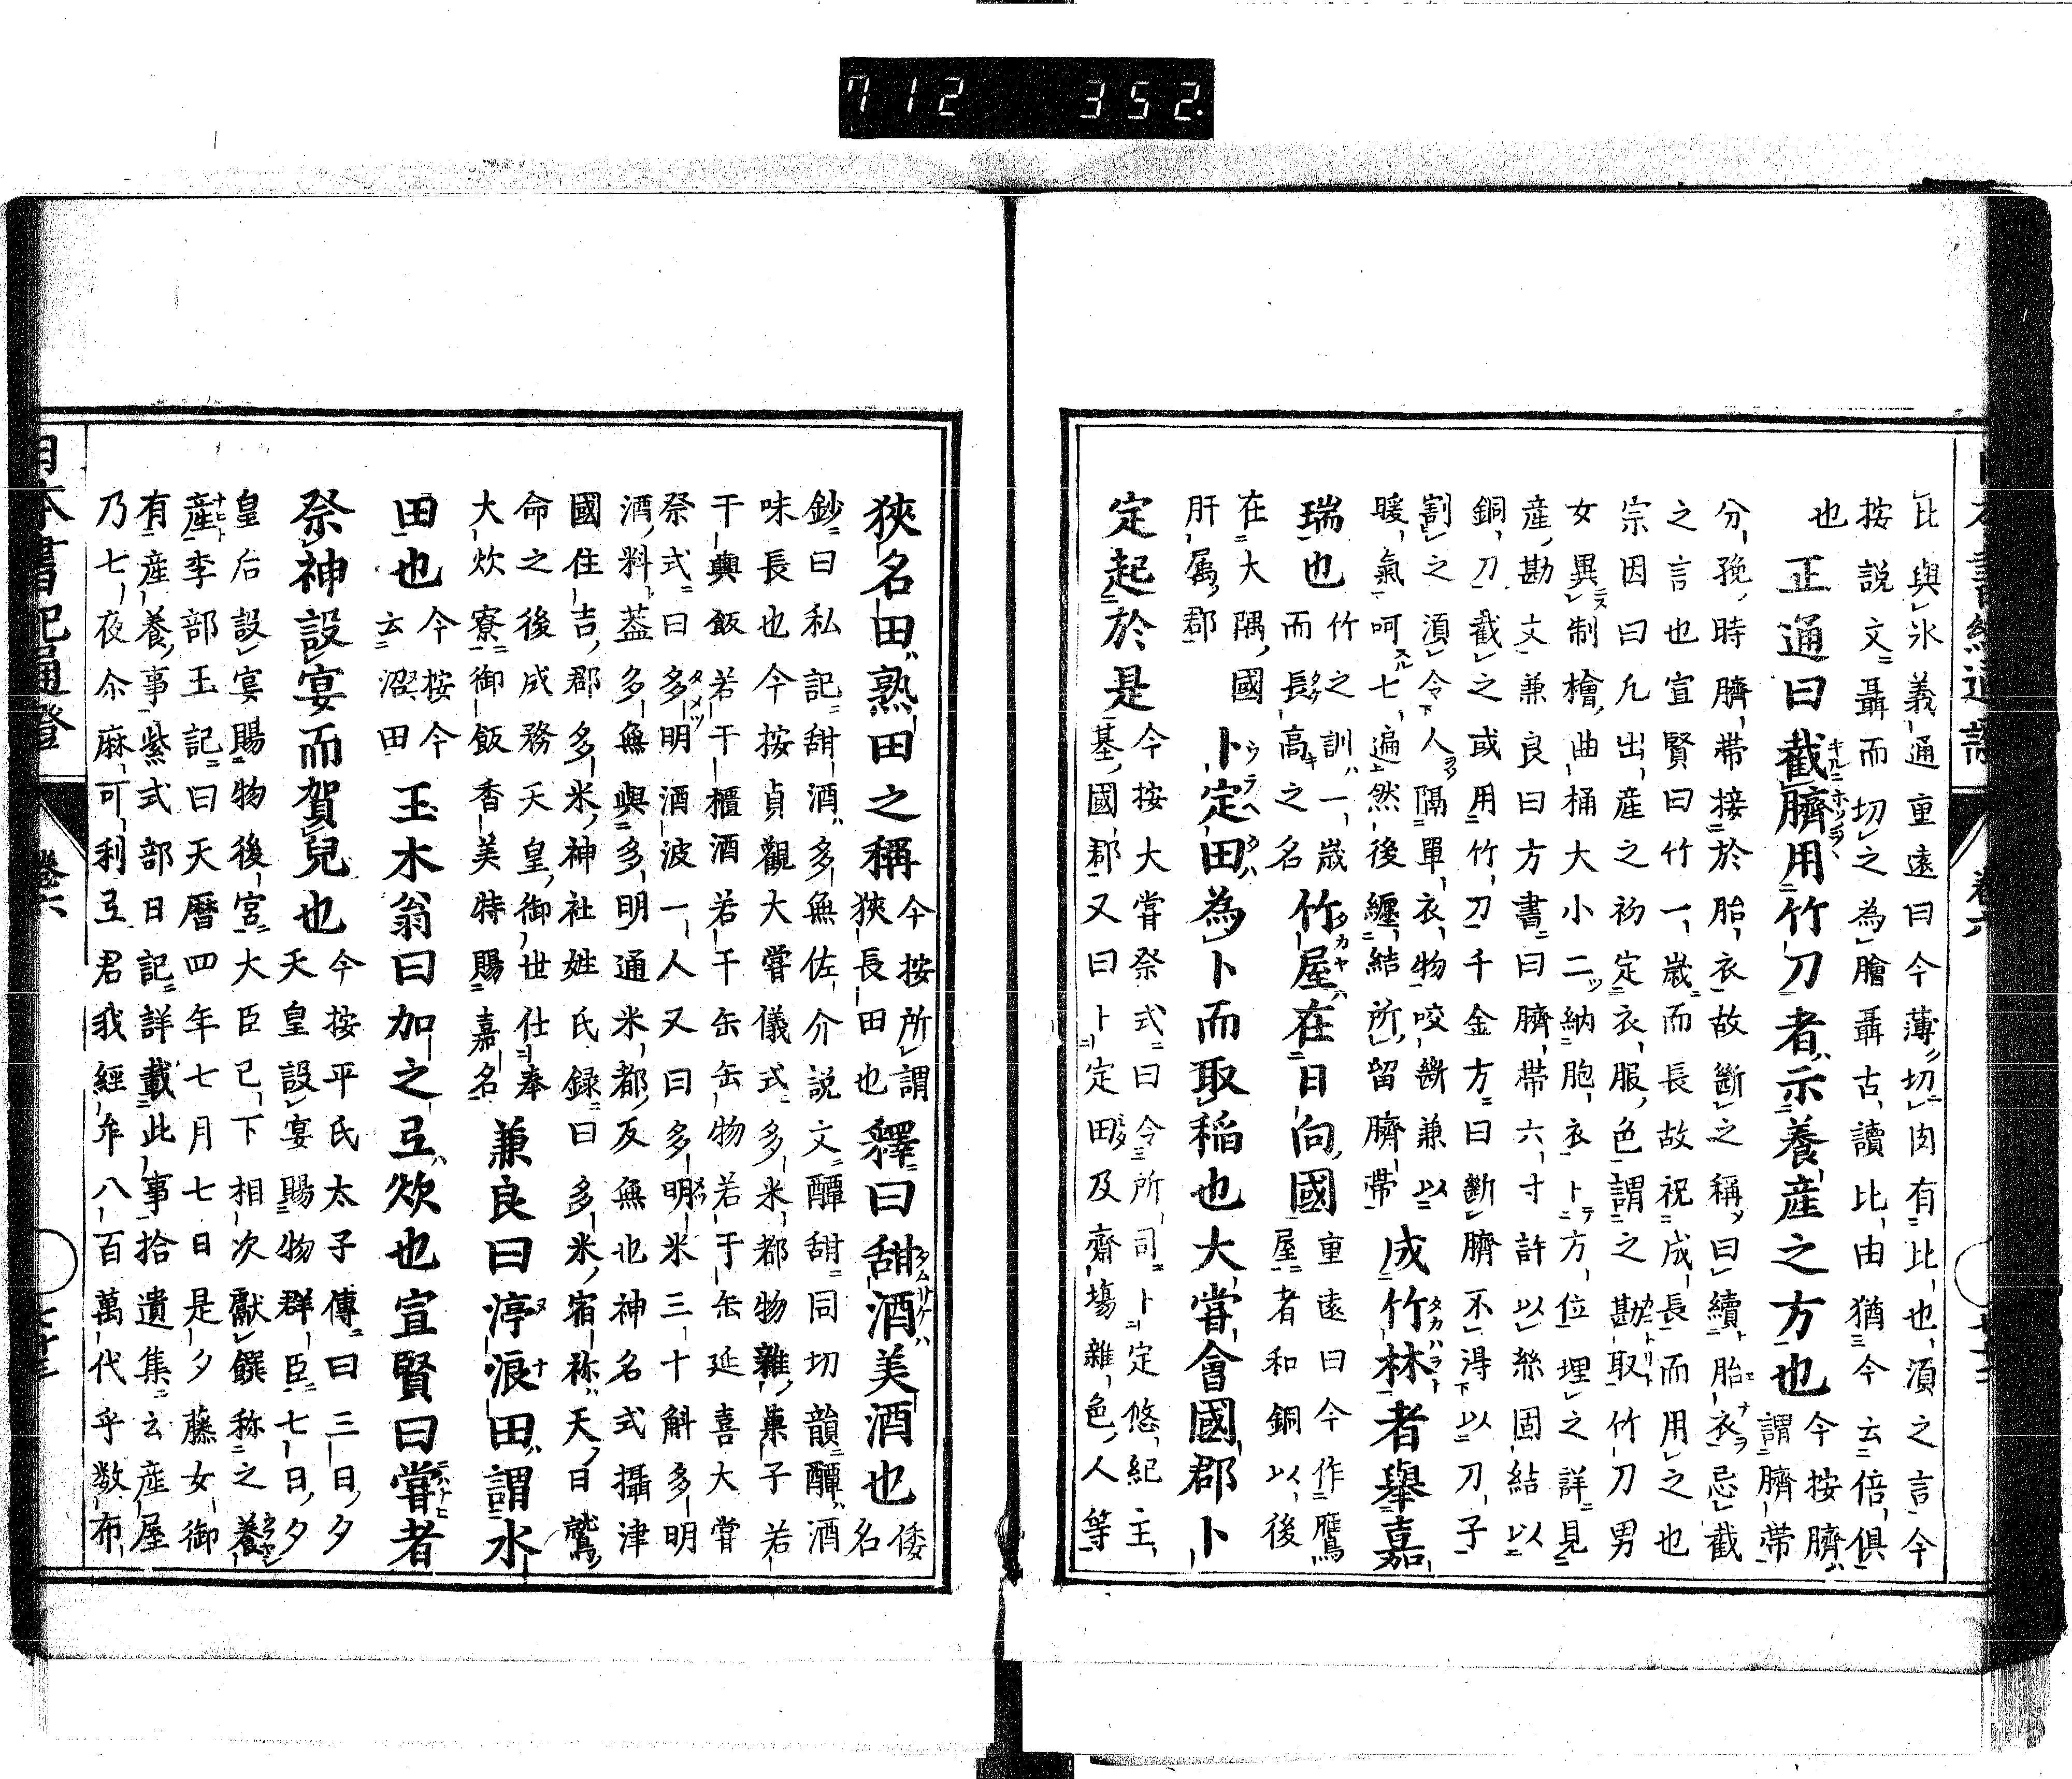 712 352.
比與氷義通重遠曰今薄切肉有比也湏之言今
按説文聶而切之為膾聶古讀比由猶今云倍倶
也
正通曰截臍用竹刀者示養産之方也
今按臍
謂臍帯
分娩時臍帯接於胎衣故斷之称曰續胎衣忌截
之言也宣賢曰竹一歳而長故祝成長而用之也
宗因曰凡出産之初定衣服色謂之勘取竹刀男
女異制檜曲桶大小二納胞衣卜方位埋之詳見
産勘文兼良曰方書曰臍帯六寸許以絲固結以
銅刀截之或用竹刀千金方曰斷臍不得以刀子
割之湏令人隔單衣物咬斷兼以
暖氣呵七遍然後纒結所留臍帯
成竹林者擧嘉
瑞也
竹之訓一歳
而長高之名
竹屋在日向國
重遠曰今作鷹
屋者和銅以後
在大隅國
肝属郡
卜定田為卜而取稲也大嘗會國郡卜
定起於是
今按大嘗祭式曰令所司卜定悠紀主
基國郡又曰卜定田及齋塲雜色人等
狹名田熟田之稱
今按所謂
狹長田也
釋曰甜酒美酒也
倭
名
鈔曰私記甜酒多無佐介説文醰甜同切韻醰酒
味長也今按貞觀大嘗儀式多米都物雜菓子若
干與飯若干櫃酒若干缶缶物若干缶延喜大嘗
祭式曰多明酒波一人又曰多明米三十斛多明
酒料葢多無與多明通米都反無也神名式攝津
國住吉郡多米神社姓氏録曰多米宿祢天日鷲
命之後成務天皇御世仕奉
大炊寮御飯香美特賜嘉名
兼良曰渟浪田謂水
田也
今按今
云沼田
玉木翁曰加之弖炊也宣賢曰甞者
祭神設宴而賀兒也
今按平氏太子傳曰三日夕
天皇設宴賜物群臣七日夕
皇后設宴賜物後宮大臣已下相次獻饌称之養
産李部王記曰天暦四年七月七日是夕藤女御
有産養事紫式部日記詳載此事拾遺集云産屋
乃七夜尒麻可利弖君我經牟八百萬代乎数布
日本書紀通證
卷六